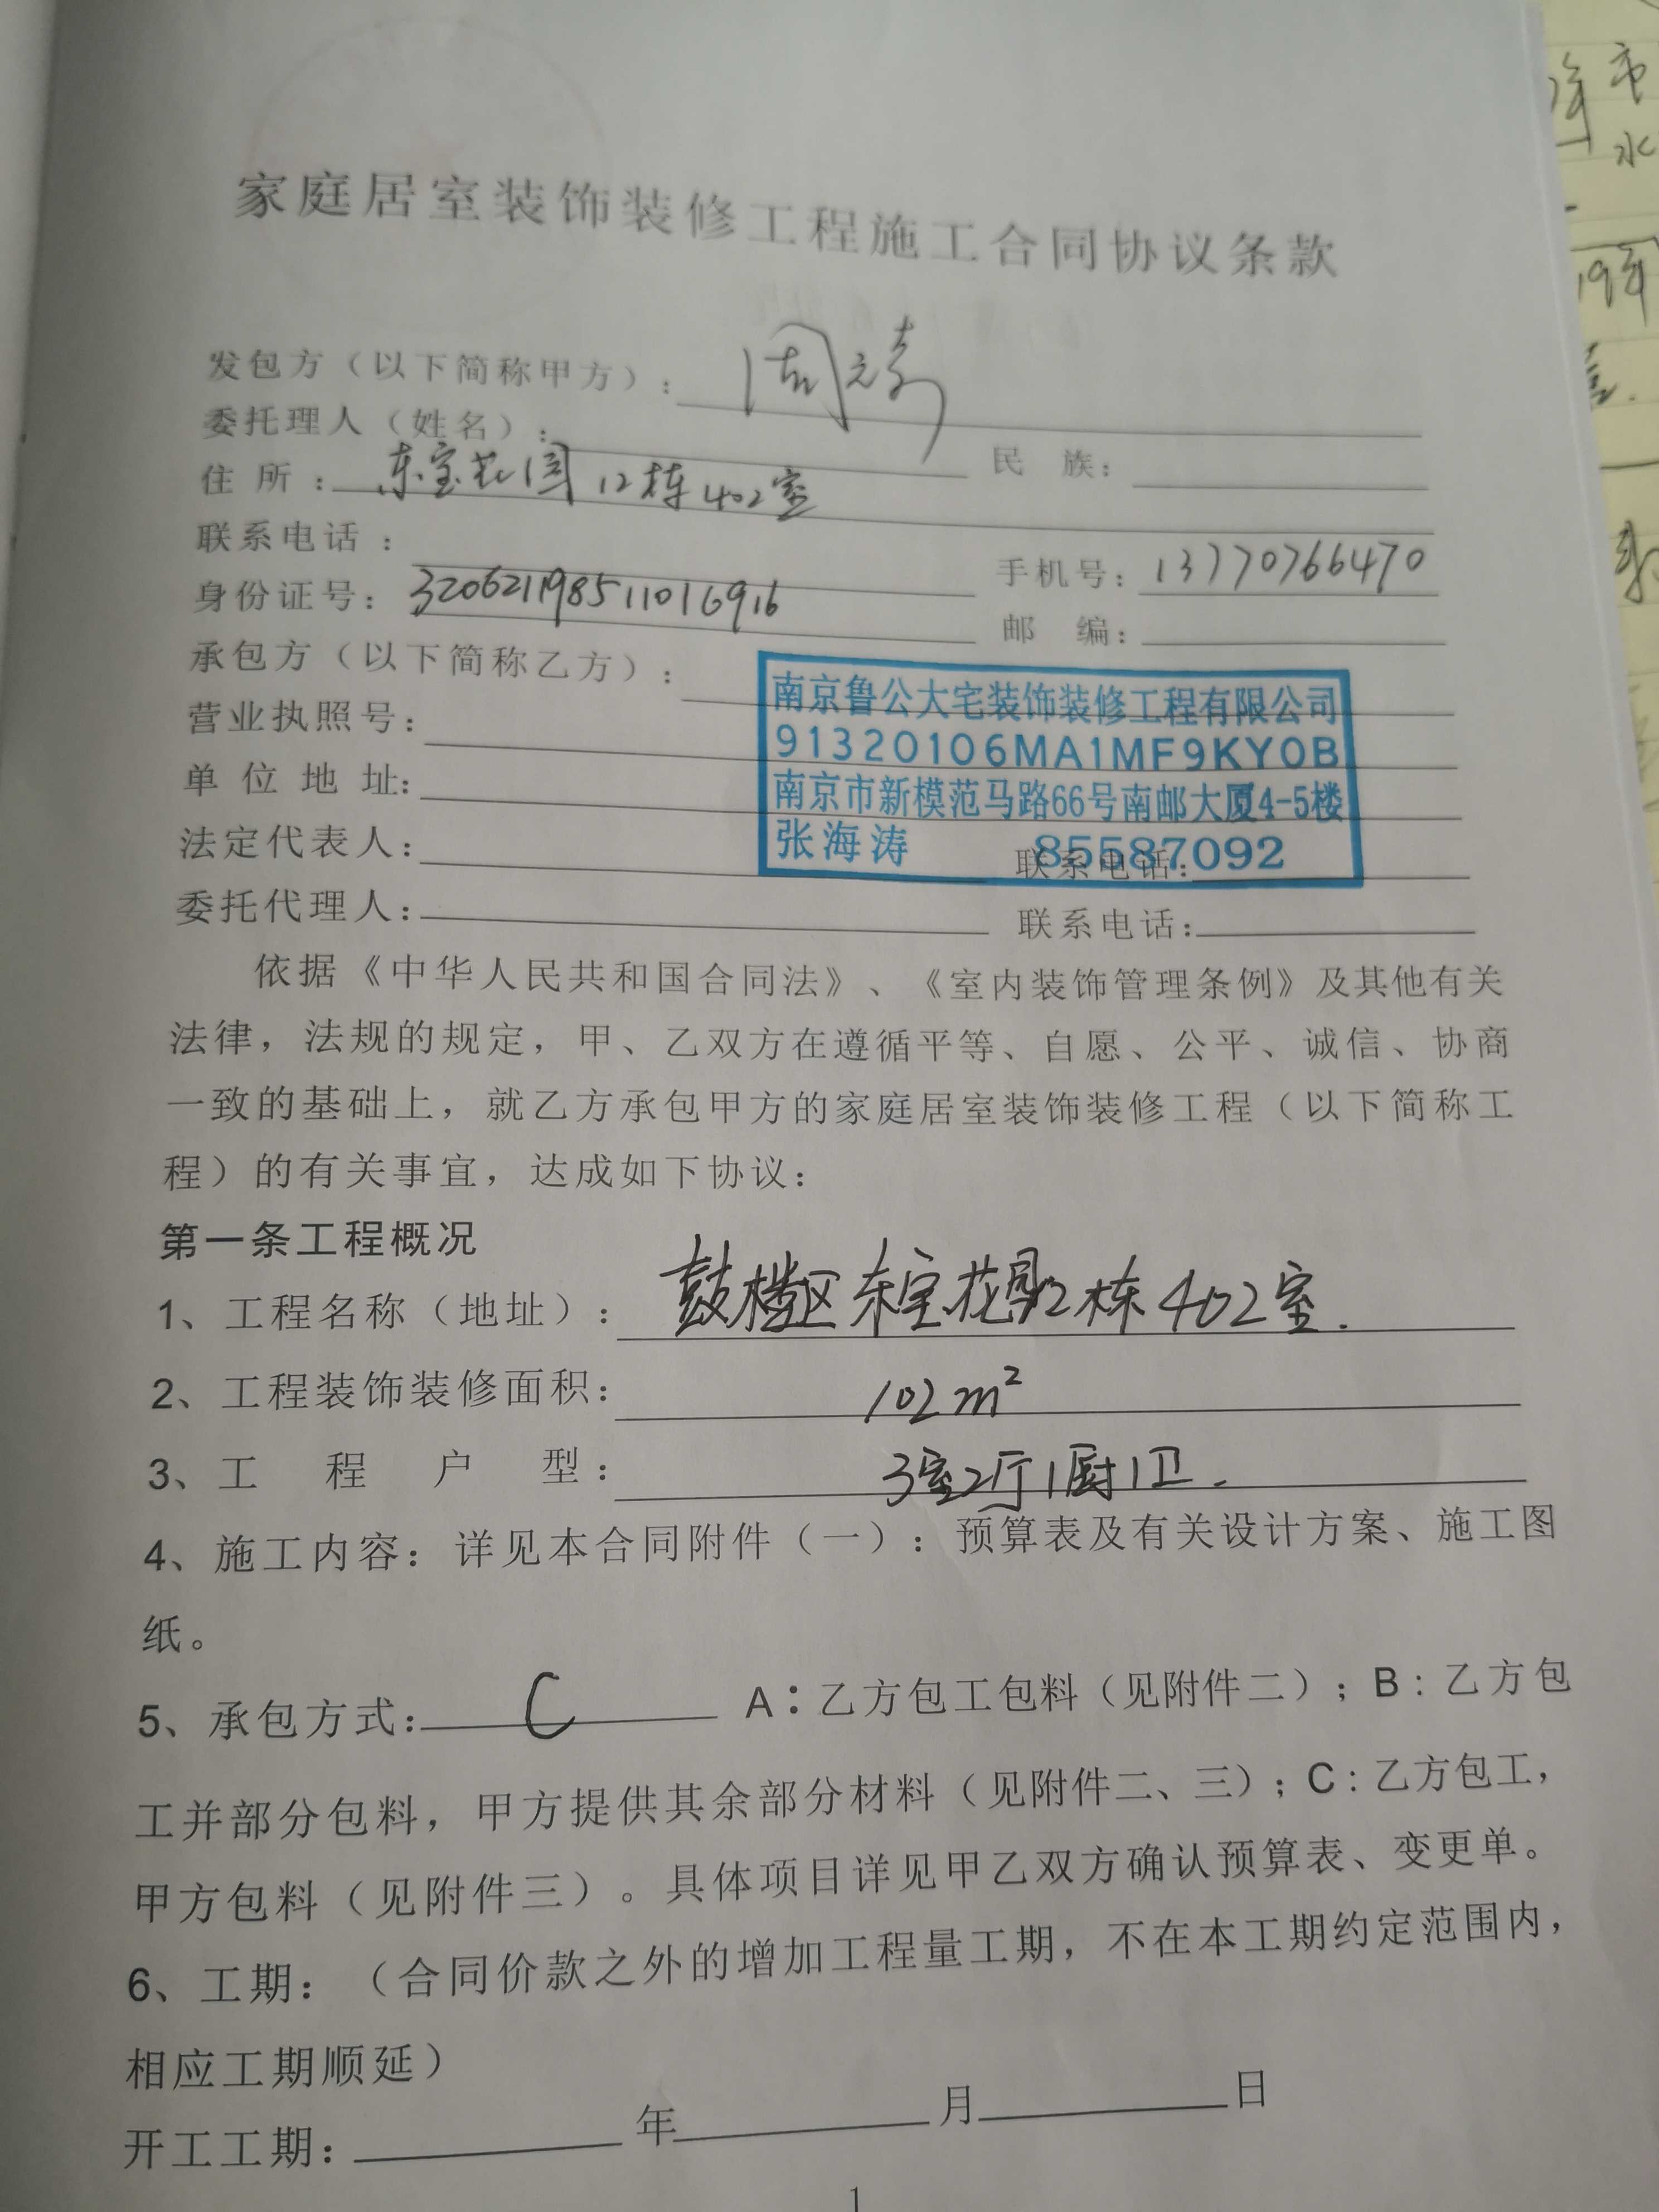 家庭居室装饰装修工程施工合同协议条款
发包方（以下简称甲方）：周
委托理人（姓名）：
民 族：
住 所：东宝花园12栋402室
联系电话：
手机号：13770766470
身份证号：320621198511016916
邮 编：
承包方（以下简称乙方）：南京鲁公大宅装饰装修工程有限公司
营业执照号：91320106MA1MF9KY0B
单 位 地 址：南京市新模范马路66号南邮大厦4-5楼
法定代表人：张海涛 联系电话：85587092
委托代理人： 联系电话：
依据《中华人民共和国合同法》、《室内装饰管理条例》及其他有关
法律，法规的规定，甲、乙双方在遵循平等、自愿、公平、诚信、协商
一致的基础上，就乙方承包甲方的家庭居室装饰装修工程（以下简称工
程）的有关事宜，达成如下协议：
第一条工程概况
1、工程名称（地址）：鼓楼区东宝花园12栋402室.
2、工程装饰装修面积：102m²
3、工 程 户 型：3室2厅1厨1卫.
4、施工内容：详见本合同附件（一）：预算表及有关设计方案、施工图
纸。
5、承包方式：C A：乙方包工包料（见附件二）；B：乙方包
工并部分包料，甲方提供其余部分材料（见附件二、三）；C：乙方包工，
甲方包料（见附件三）。具体项目详见甲乙双方确认预算表、变更单。
6、工期：（合同价款之外的增加工程量工期，不在本工期约定范围内，
相应工期顺延）
开工工期： 年 月 日
1
市
水
19年